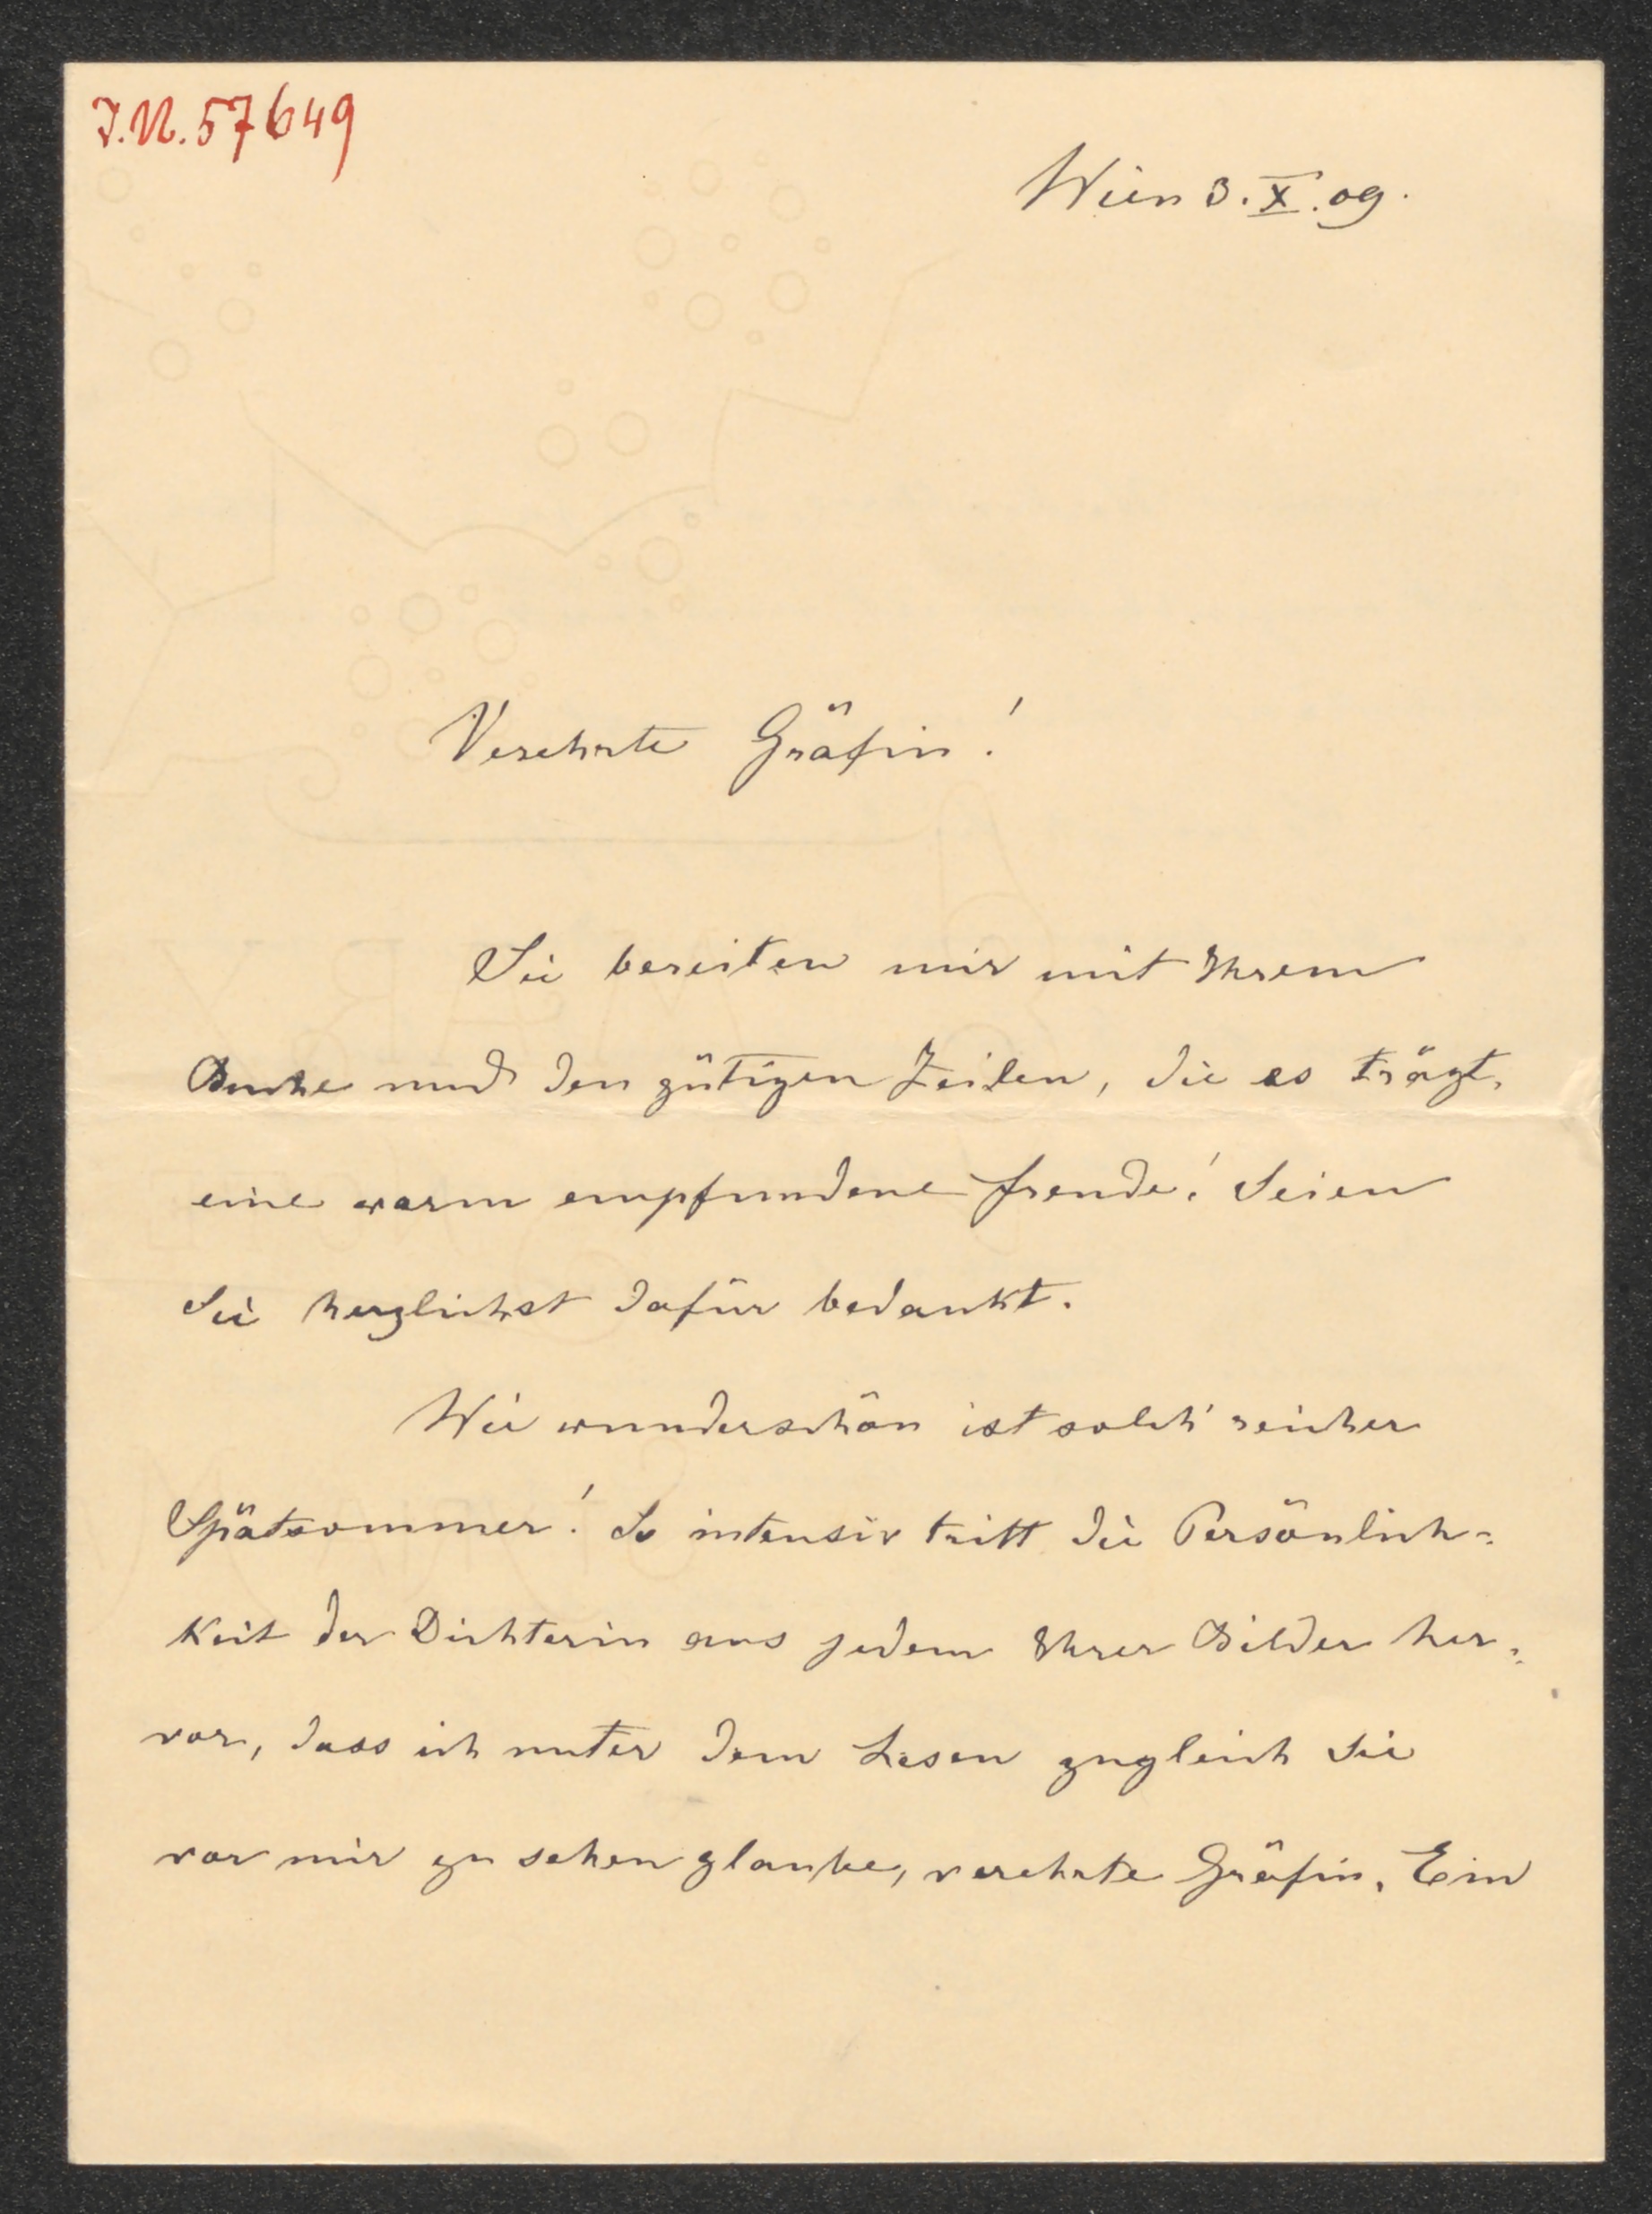 J.N. 57649
Wien 3. X. 09.
Verehrte Gräfin!
Sie bereiten mir mit Ihrem
Buche und den gütigen Zeilen, die es trägt,
eine warm empfundene Freude! Seien
Sie herzlichst dafür bedankt.
Wie wunderschön ist solch' reicher
Spätsommer! So intensiv tritt die Persönlich-
keit der Dichterin aus jedem Ihrer Bilder her-
vor, dass ich unter dem Lesen zugleich Sie
vor mir zu sehen glaube, verehrte Gräfin. Ein